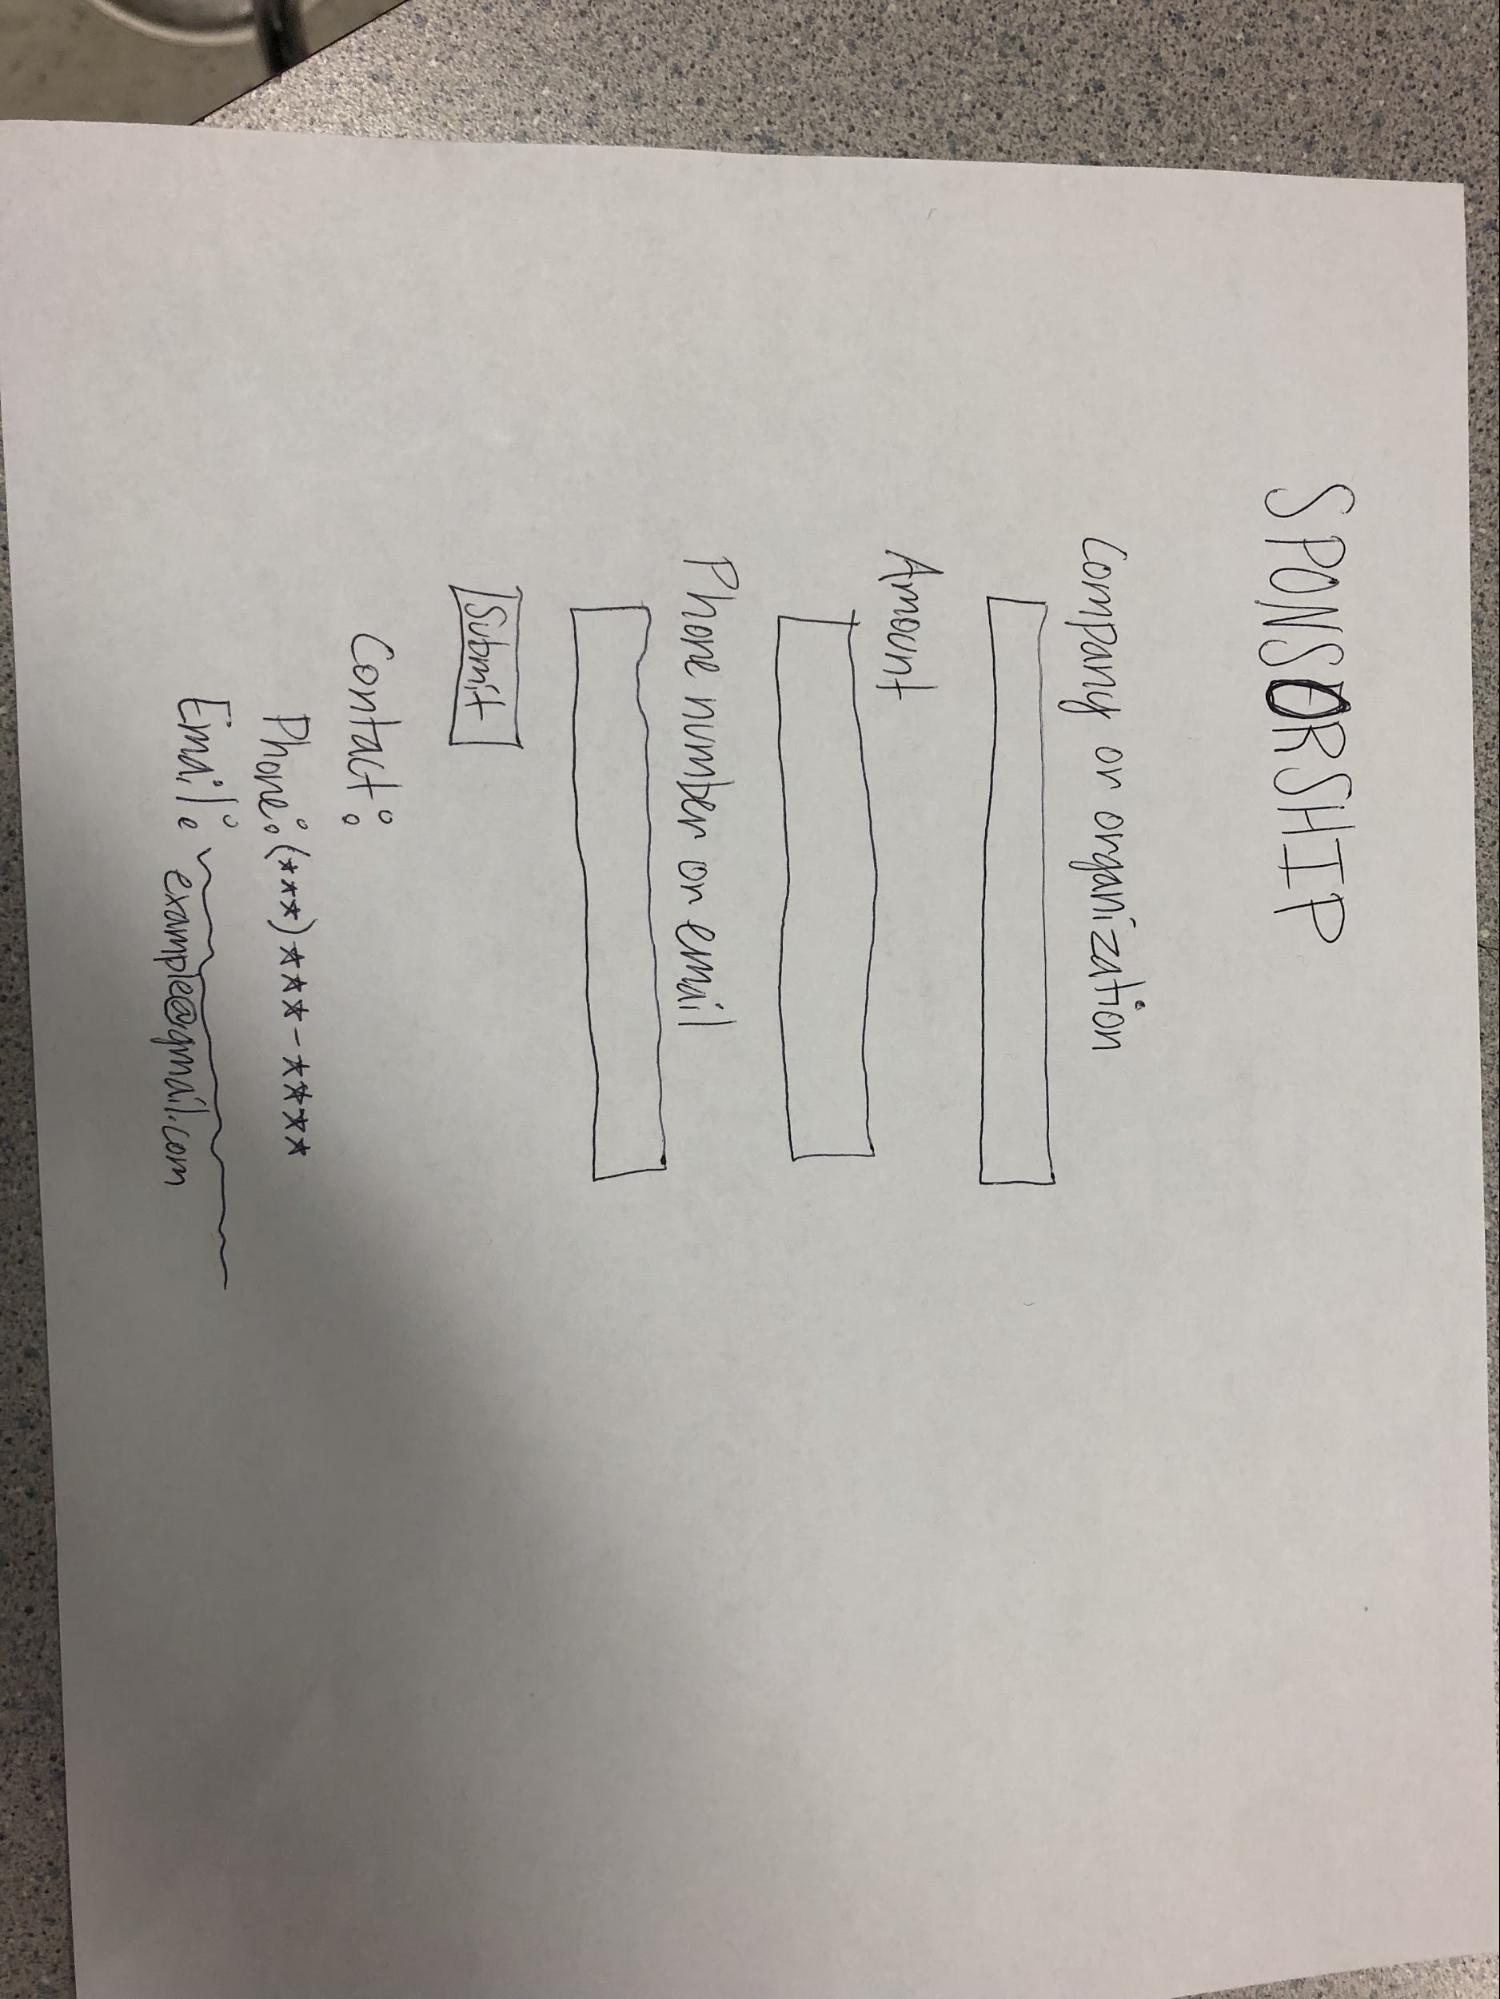 SPONSORSHIP
Company or organization
Amount
Phone number or email
Submit
Contact:
Phone: (***) *** - ****
Email: example@gmail.com